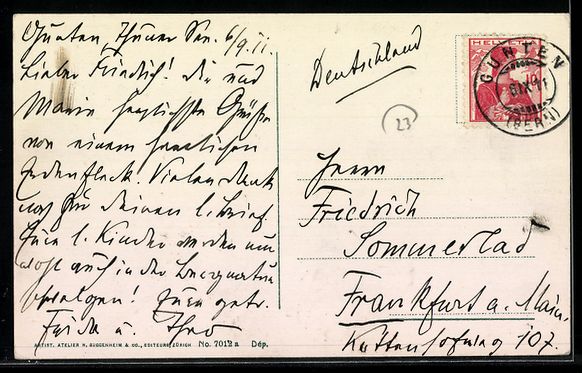 Gunten, Thuner See. 6/9. 11.
Lieber Friedrich! Dir und
Marie herzlichste Grüße
von einem herrlichen
Erdenfleck. Vielen Dank
noch für deinen l. Brief.
Eure l. Kinder werden nun
wohl auch in der
! Eure getr.
Frida u. Theo
ARTIST. ATELIER H. GUGGENHEIM & CO., EDITEURS, ZÜRICH No. 7012 a Dép.
Deutschland
HELVETIA
GUNTEN
6 IX 11
(BERN)
23
Herrn
Friedrich
Sommerlad
Frankfurt a. Main.
107.